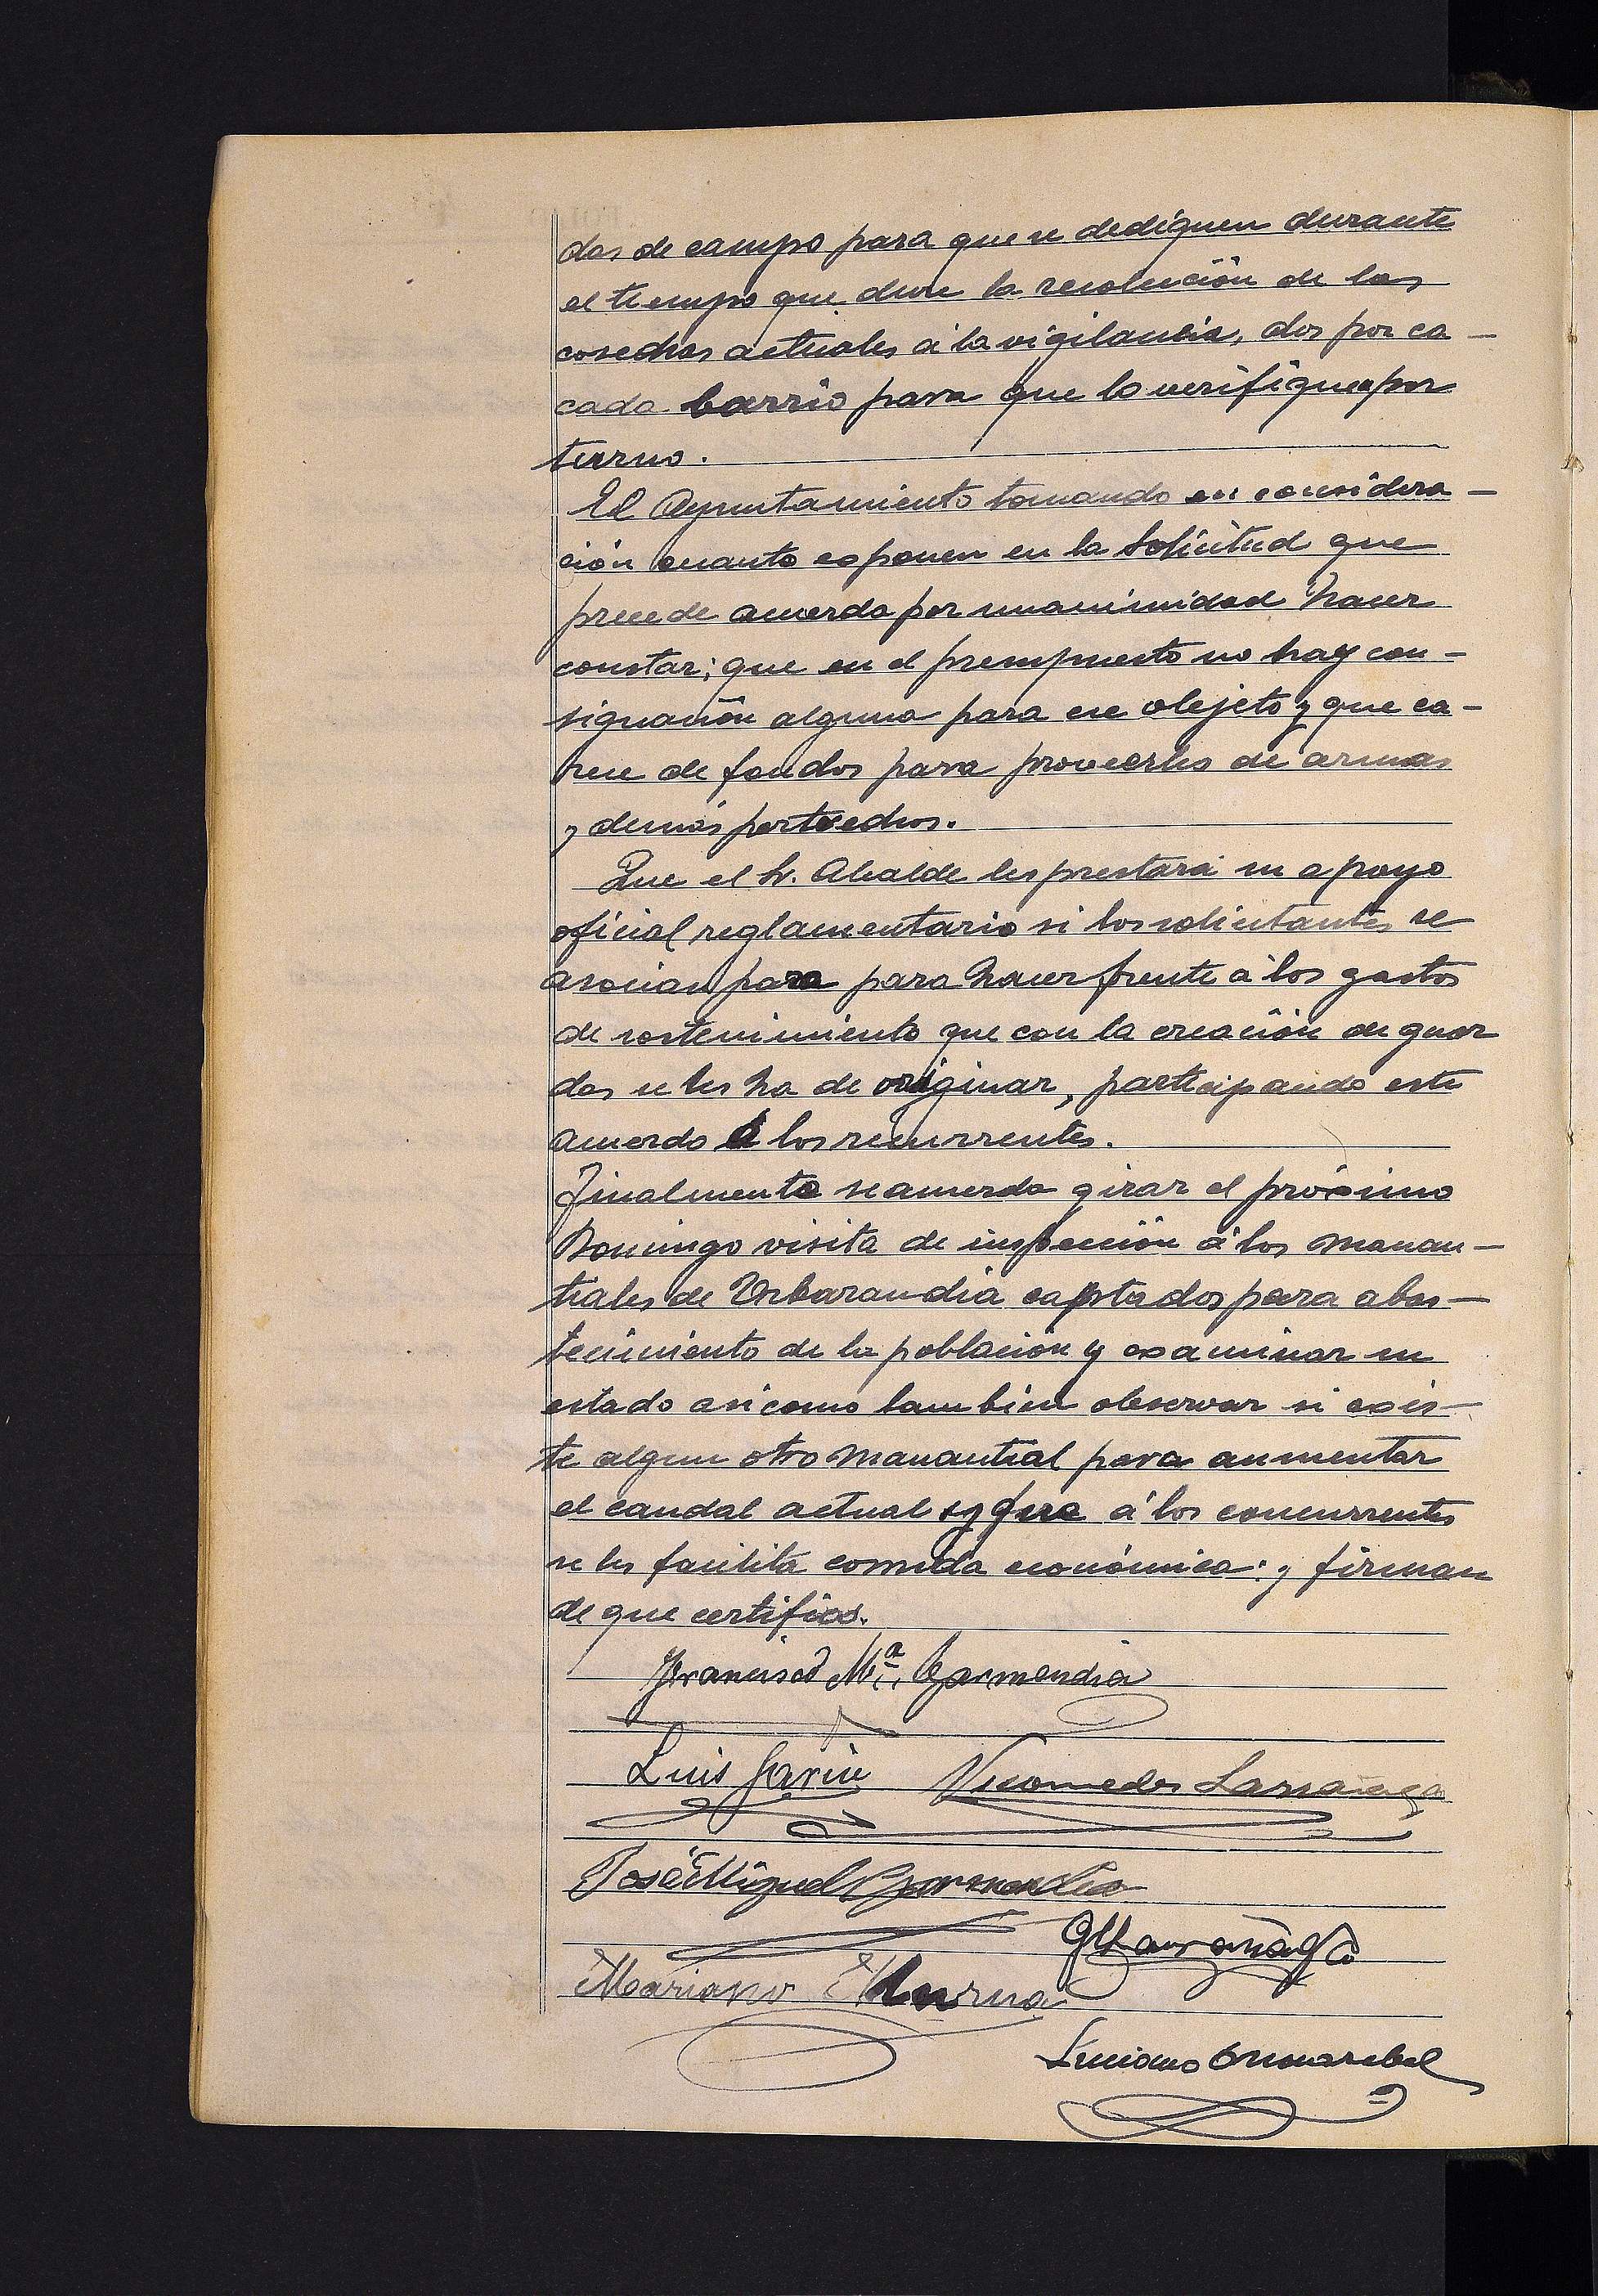 das de campo para que se dediquen durante
el tiempo que dure la recolección de las
cosechas actuales á la vigilancia, dos por ca-
cada barrio para que lo verifiquen por
turno.
El Ayuntamiento tomando en considera-
ción cuanto exponen en la Solicitud que
precede acuerda por unanimidad hacer
constar; que en el presupuesto no hay con-
signación alguna para ese objeto y que ca-
rece de fondos para proveerles de armas
y demás pertrechos.
Que el Sr. Alcalde les prestará su apoyo
oficial reglamentario si los solicitantes se
asocian para para hacer frente á los gastos
de sostenimiento que con la creación de guar
das se les ha de originar, participando este
acuerdo á los recurrentes.
Finalmente se acuerda girar el próximo
Domingo visita de inspección á los manan-
tiales de Urbarandia captados para abas-
tecimiento de la población y examinar su
estado asi como tambien observar si exis-
te algun otro manantial para aumentar
el caudal actual y que á los concurrentes
se les facilita comida económica: y firman
de que certifico.
Francisco Mª. Garmendia
Luis Garin Nicomedes Larrañaga
José Miguel Garmendia
Larrañaga
Mariano
Luciano